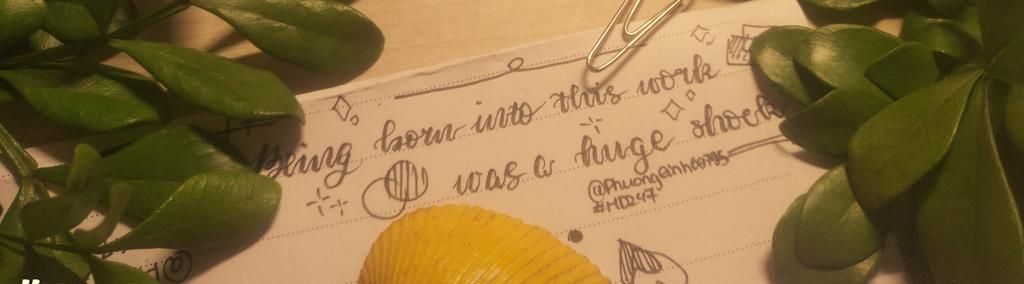 Being born into this work
was a huge shock
@Phuonganh00795
#HD247